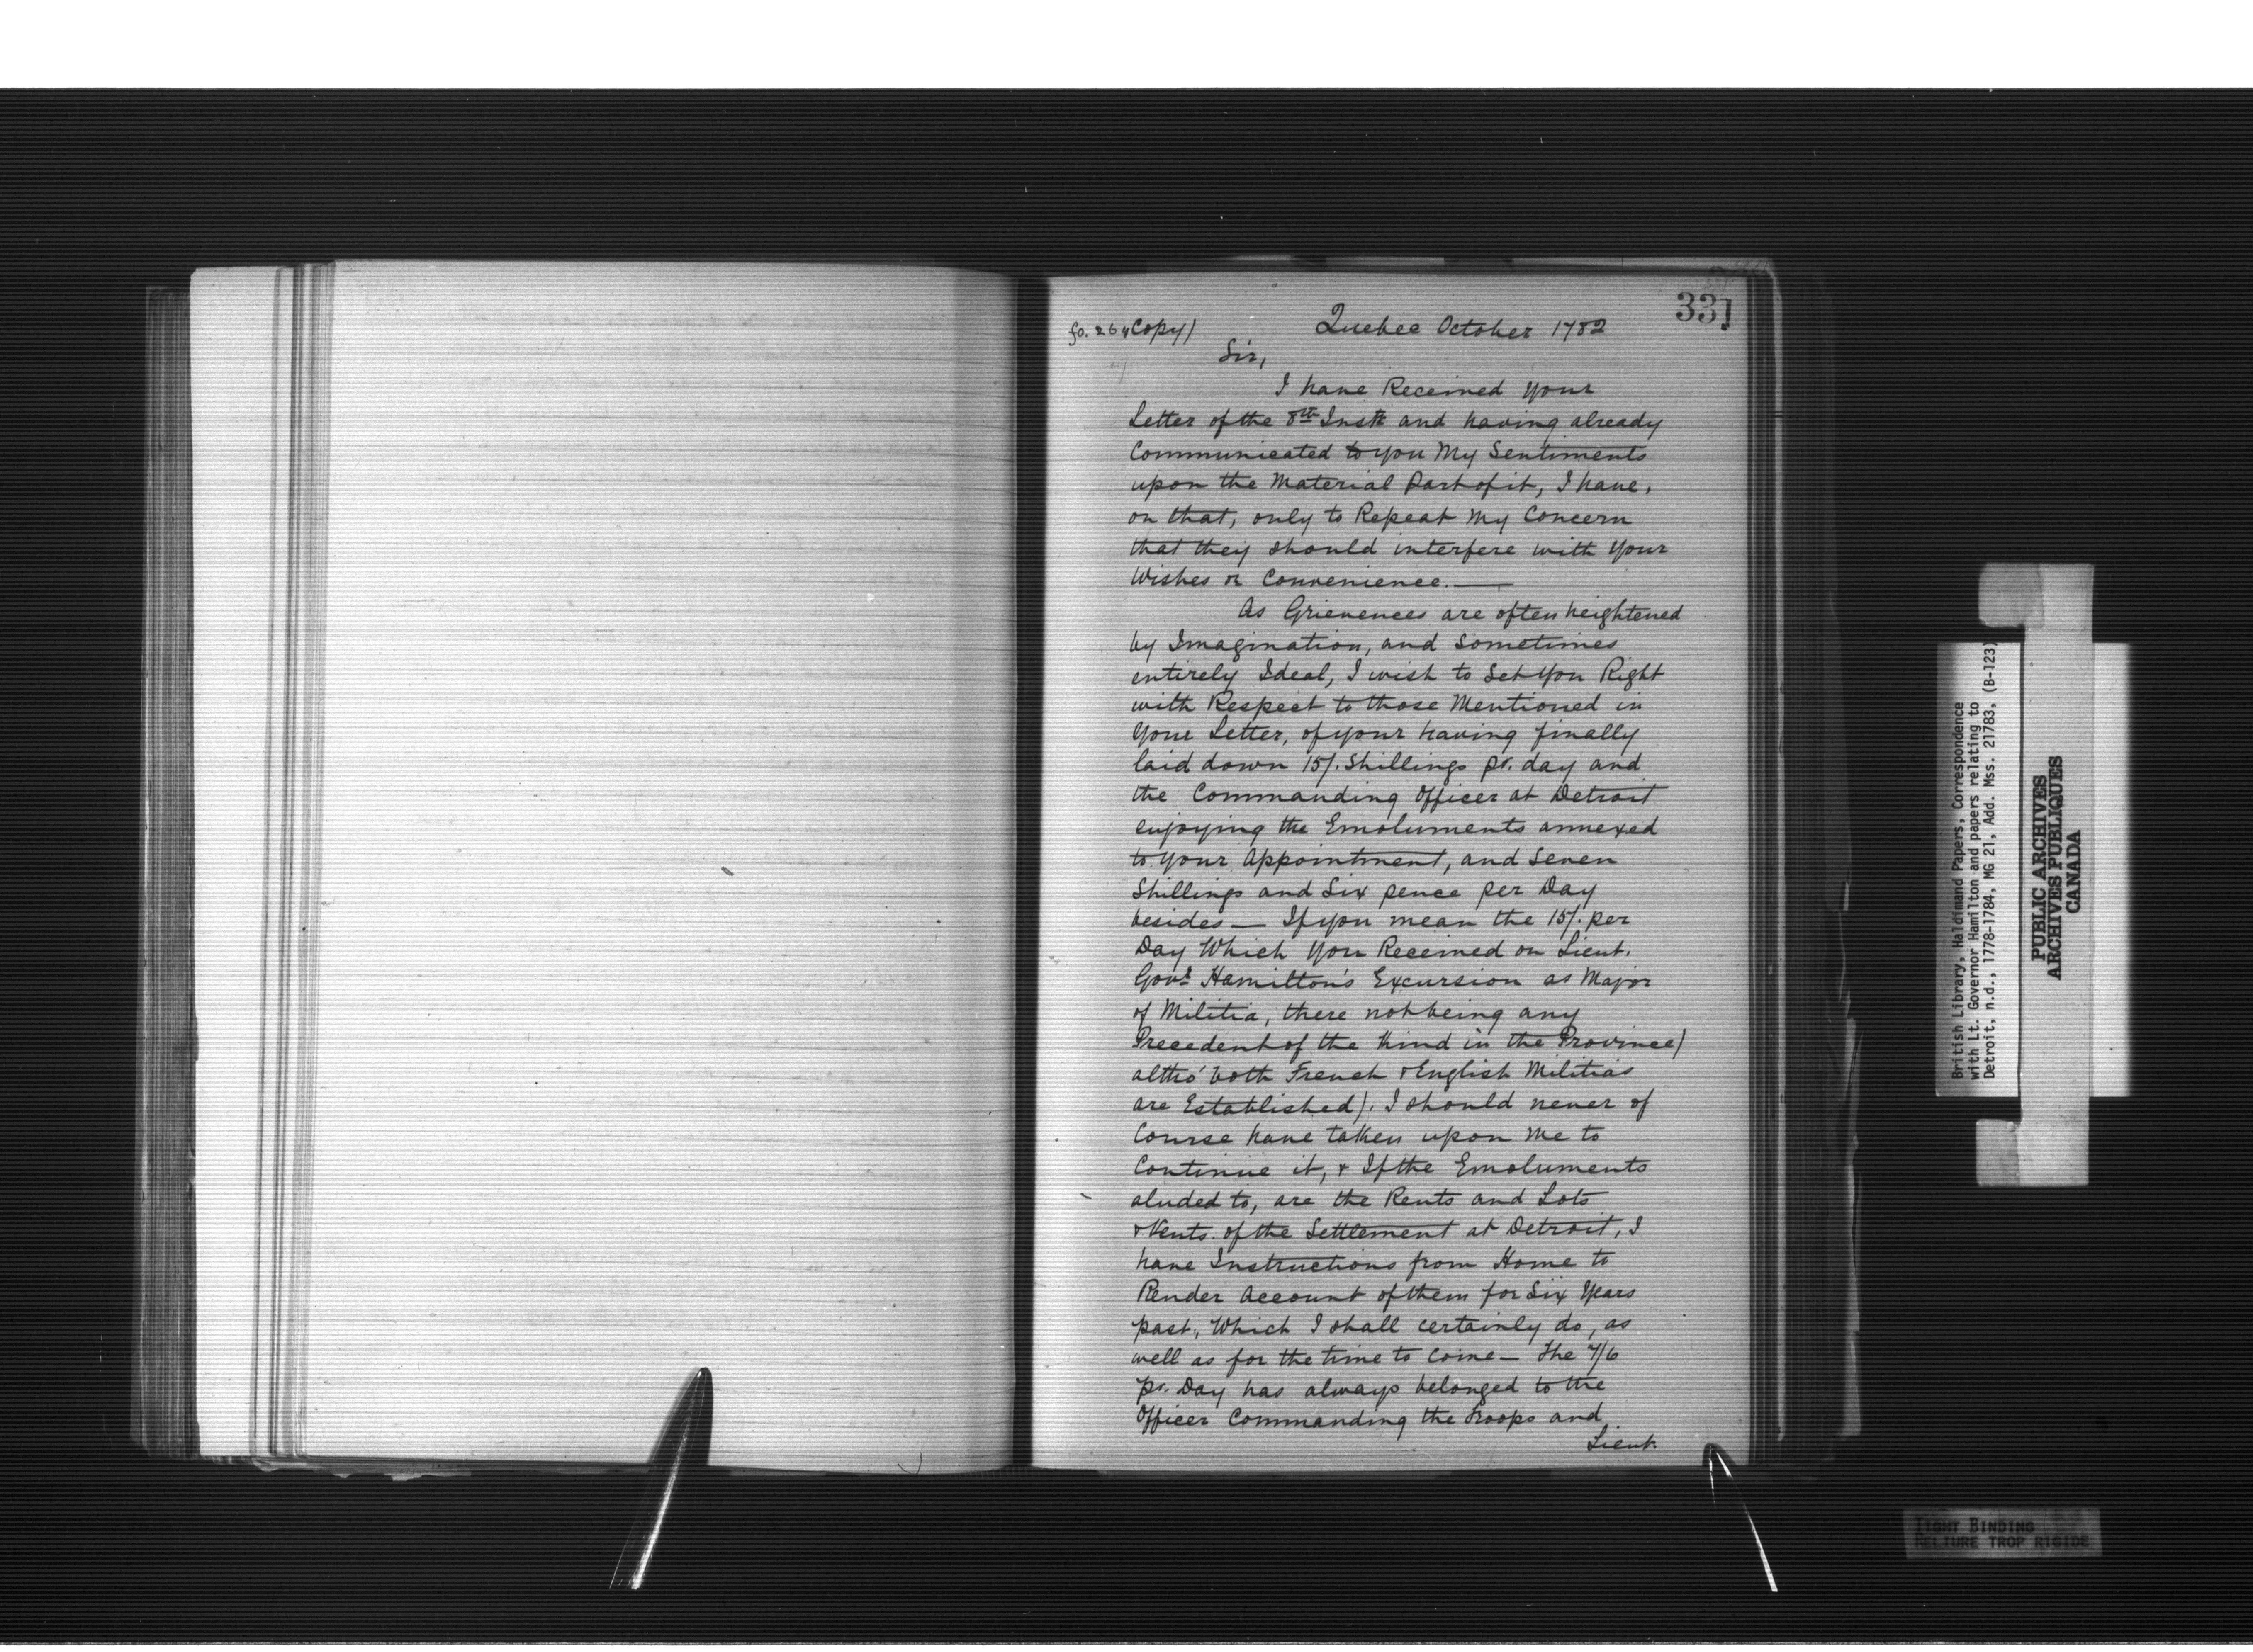 331
fo. 264 Copy) Quebec October 1782
Sir,
I have Received your
Letter of the 8th Instt and having already
Communicated to you My Sentiments
upon the Material Part of it, I have,
on that, only to Repeat my Concern
that they should interfere with your
Wishes or Convenience.—
As Grievences are often heightened
by Imagination, and sometimes
entirely Ideal, I wish to Set you Right
with Respect to those Mentioned in
Your Letter, of your having finally
laid down 15/. Shillings pr. day and
the Commanding Officer at Detroit
enjoying the Emoluments annexed
to your Appointment, and Seven
Shillings and Six pence per Day
besides — If you mean the 15/. per
Day Which you Received on Lieut.
Govr Hamilton's Excursion as Major
of Militia, there not being any
Precedent of the Kind in the Province)
altho' both French & English Militias
are Established). I should never of
Course have taken upon me to
Continue it, & If the Emoluments
aluded to, are the Rents and Lots
& Vents. of the Settlement at Detroit, I
have Instructions from Home to
Render Account of them for Six Years
past, Which I shall certainly do, as
well as for the time to come — The 7/6
pr. Day has always belonged to the
Officer Commanding the Troops and
Lieut.
British Library, Haldimand Papers, Correspondence
with Lt. Governor Hamilton and papers relating to
Detroit, n.d., 1778-1784, MG 21, Add. Mss. 21783, (B-123)
PUBLIC ARCHIVES
ARCHIVES PUBLIQUES
CANADA
TIGHT BINDING
RELIURE TROP RIGIDE